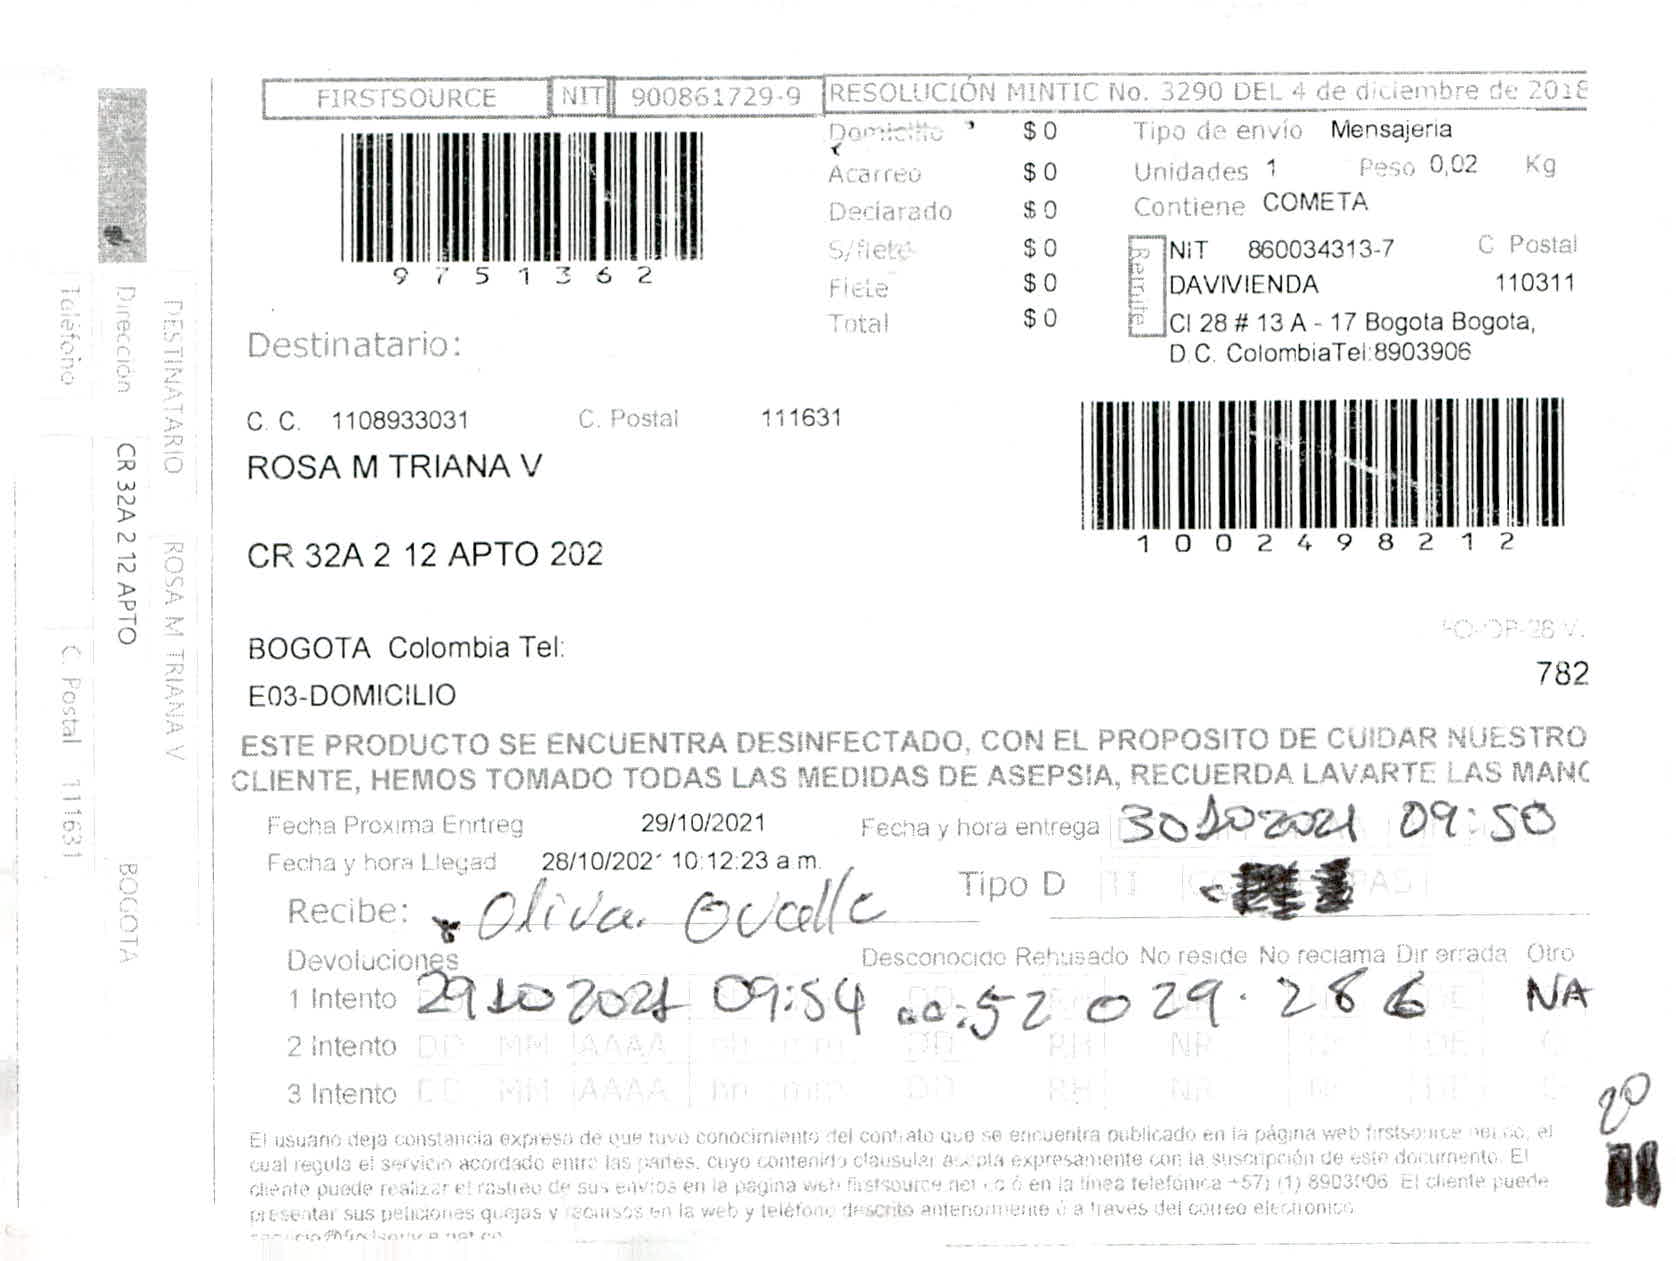 FIRSTSOURCE NIT 900861729-9 RESOLUCIÓN MINTIC No. 3290 DEL 4 de diciembre de 2018
9751362
Domicilio $ 0
Acarreo $ 0
Declarado $ 0
S/flete $ 0
Flete $ 0
Total $ 0
Tipo de envío Mensajeria
Unidades 1 Peso 0,02 Kg
Contiene COMETA
Remite
NiT 860034313-7 C Postal
DAVIVIENDA 110311
Cl 28 # 13 A - 17 Bogota Bogota,
D C. ColombiaTel:8903906
Destinatario:
C. C. 1108933031 C. Postal 111631
ROSA M TRIANA V
CR 32A 2 12 APTO 202
1002498212
BOGOTA Colombia Tel:
E03-DOMICILIO
782
ESTE PRODUCTO SE ENCUENTRA DESINFECTADO, CON EL PROPOSITO DE CUIDAR NUESTRO
CLIENTE, HEMOS TOMADO TODAS LAS MEDIDAS DE ASEPSIA, RECUERDA LAVARTE LAS MANO
Fecha Proxima Enrtreg 29/10/2021 Fecha y hora entrega 30 10 2021 09:50
Fecha y hora Llegad 28/10/2021 10:12:23 a.m.
Tipo D TI
Recibe: Oliva Ovalle
Devoluciones Desconocido Rehusado No reside No reclama Dir errada Otro
1 Intento 29 10 2021 09:54 cc:52 029.286 NA
2 Intento DD MM AAAA hh mm DD RH NR DE
3 Intento DD MM AAAA hh mm DD RH NR
20
El usuario deja constancia expresa de que tuvo conocimiento del contrato que se encuentra publicado en la página web firstsource.net.co, el
cual regula el servicio acordado entre las partes, cuyo contenido clausular acepta expresamente con la suscripción de este documento. El
cliente puede realizar el rastreo de sus envios en la pagina web firstsource.net.co ó en la línea telefónica +57) (1) 8903906. El cliente puede
presentar sus peticiones quejas y recursos en la web y teléfono descrito anteriormente ó a traves del correo electronico
DESTINATARIO ROSA M TRIANA V
Dirección CR 32A 2 12 APTO BOGOTA
Teléfono C. Postal 111631